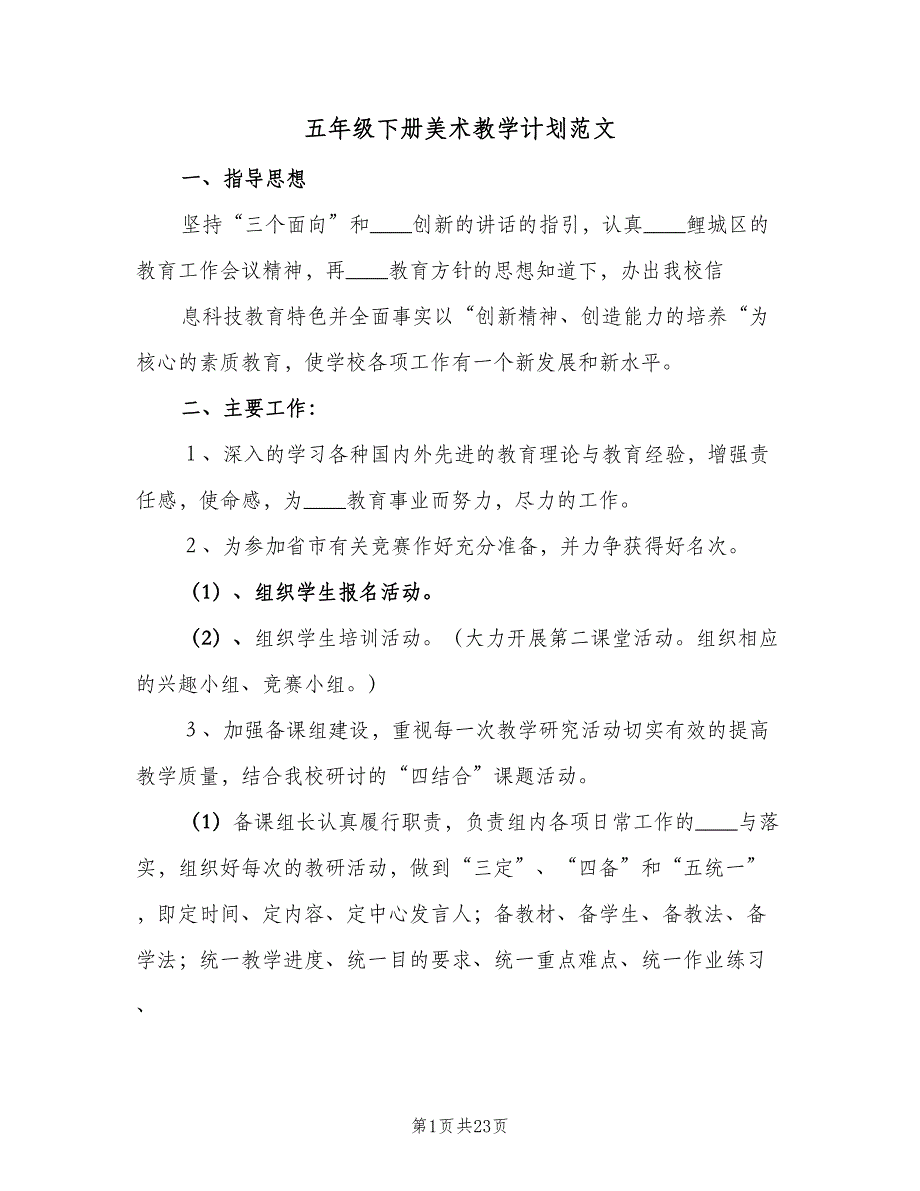 五年级下册美术教学计划范文
一、指导思想
坚持“三个面向”和____创新的讲话的指引，认真____鲤城区的
教育工作会议精神，再____教育方针的思想知道下，办出我校信
息科技教育特色并全面事实以“创新精神、创造能力的培养“为
核心的素质教育，使学校各项工作有一个新发展和新水平。
二、主要工作：
1、深入的学习各种国内外先进的教育理论与教育经验，增强责
任感，使命感，为____教育事业而努力，尽力的工作。
2、为参加省市有关竞赛作好充分准备，并力争获得好名次。
（1）、组织学生报名活动。
（2）、组织学生培训活动。（大力开展第二课堂活动。组织相应
的兴趣小组、竞赛小组。）
3、加强备课组建设，重视每一次教学研究活动切实有效的提高
教学质量，结合我校研讨的“四结合”课题活动。
（1）备课组长认真履行职责，负责组内各项日常工作的____与落
实，组织好每次的教研活动，做到“三定”、“四备”和“五统一”
，即定时间、定内容、定中心发言人；备教材、备学生、备教法、备
学法；统一教学进度、统一目的要求、统一重点难点、统一作业练习
、
第1页共23页